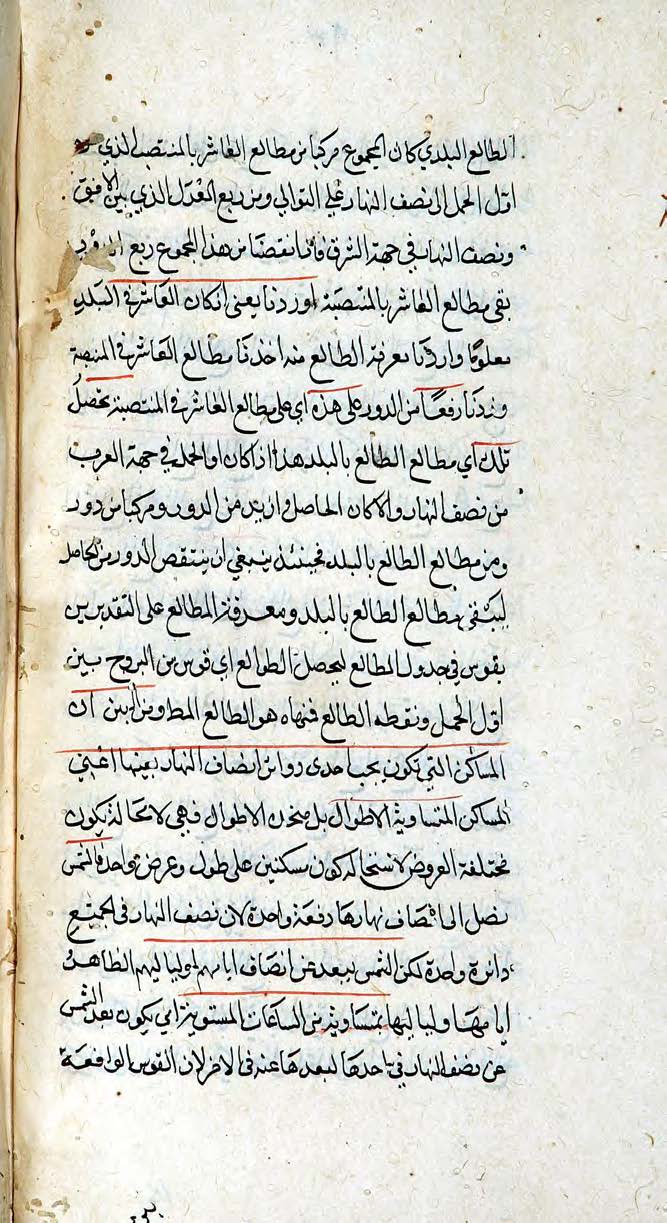 الطالع البلدي كان المجموع مركبا من مطالع العاشر بالمنتصبة الذي
اول الحمل الى نصف النهار على التوالي ومن ربع المعدل الذي بين الافق
ونصف النهار في جهة الشرق فاذا نقصنا من هذا المجموع ربع
بقى مطالع العاشر بالمنتصبة اوردنا يعنى ان كان العاشر في البلد
معلوما واردنا معرفة الطالع منه اخذنا مطالع العاشر في المنتصبة
وزدنا ربعا من الدور على هذه اي على مطالع العاشر في المنتصبة تحصل
تلك اي مطالع الطالع بالبلد هذا اذا كان اول الحمل في جهة الغرب
من نصف النهار والا كان الحاصل ازيد من الدور ومركبا من دور
ومن مطالع الطالع بالبلد فحينئذ ينبغي ان ينتقص الدور من الحاصل
ليبقى مطالع الطالع بالبلد ومعرفة المطالع على التقديرين
بقوس في جدول المطالع ليحصل الطوالع اي قوس من البروج بين
اول الحمل ونقطه الطالع فمنتهاه هو الطالع المط ومن البين ان
المساكن التي تكون بحسب احدى دوائر انصاف النهار بعينها اعني
المساكن المتساوية الاطوال بل متحدة الاطوال فهي لا محالة تكون
مختلفة العروض لاستحالة كون مسكنين على طول وعرض واحد فالشمس
تصل الى انصاف نهارها دفعة واحدة لان نصف النهار في الجميع
دائرة واحدة لكن الشمس ببعد عن انصاف ايامهم ولياليهم الظاهر
ايامها ولياليها بمتساوية من الساعات المستوية اي يكون بعد الشمس
عن نصف النهار في احدها لبعدها عنه في الاخر لان القوس الواقعة